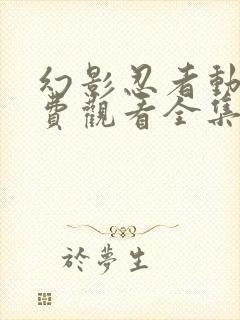 幻影忍者動
費觀看全集
於夢生